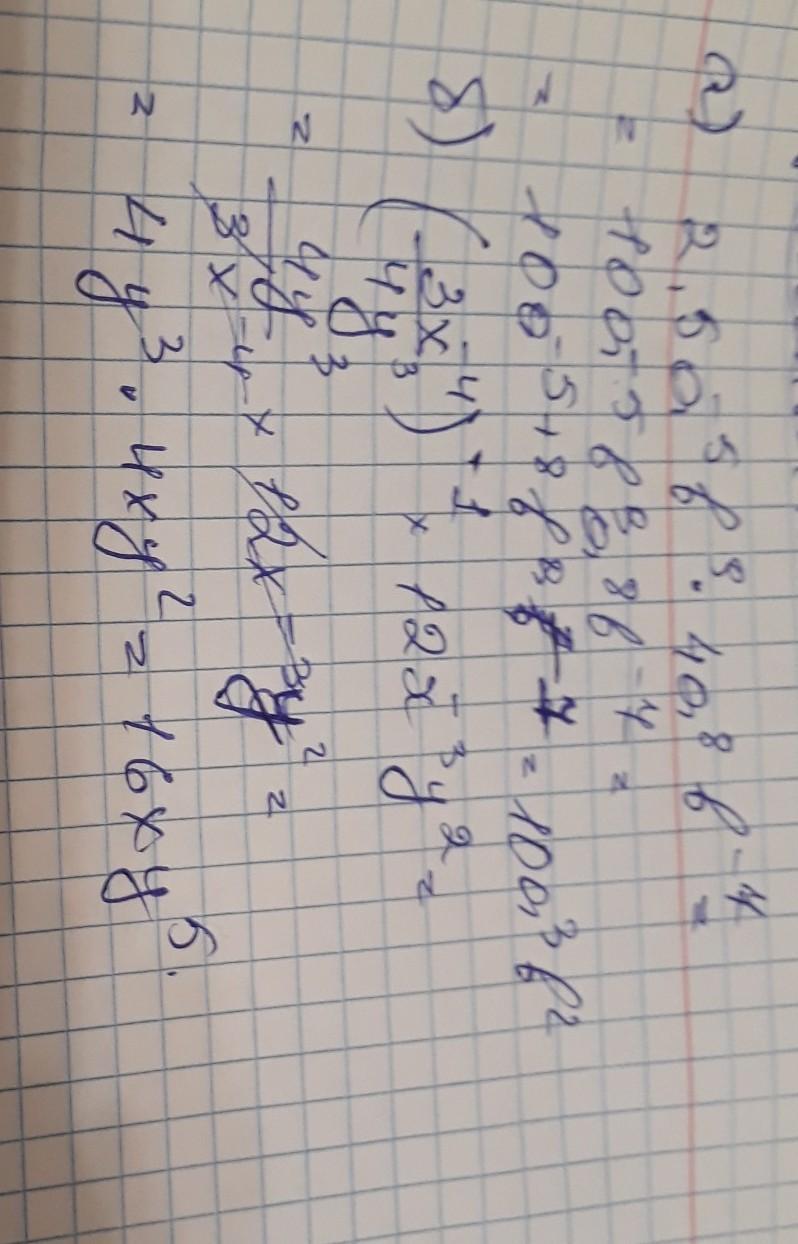 а) 2,5a⁻⁵b⁸ · 4a⁸b⁻⁴ =
= 10a⁻⁵b⁸a⁸b⁻⁴ =
= 10a⁻⁵⁺⁸b⁸⁻⁴ = 10a³b²
б) (3x⁻⁴/4y³)⁻¹ × 12x⁻³y² =
= 4y³/3x⁻⁴ × 12x⁻³y² =
= 4y³ · 4xy² = 16xy⁵.